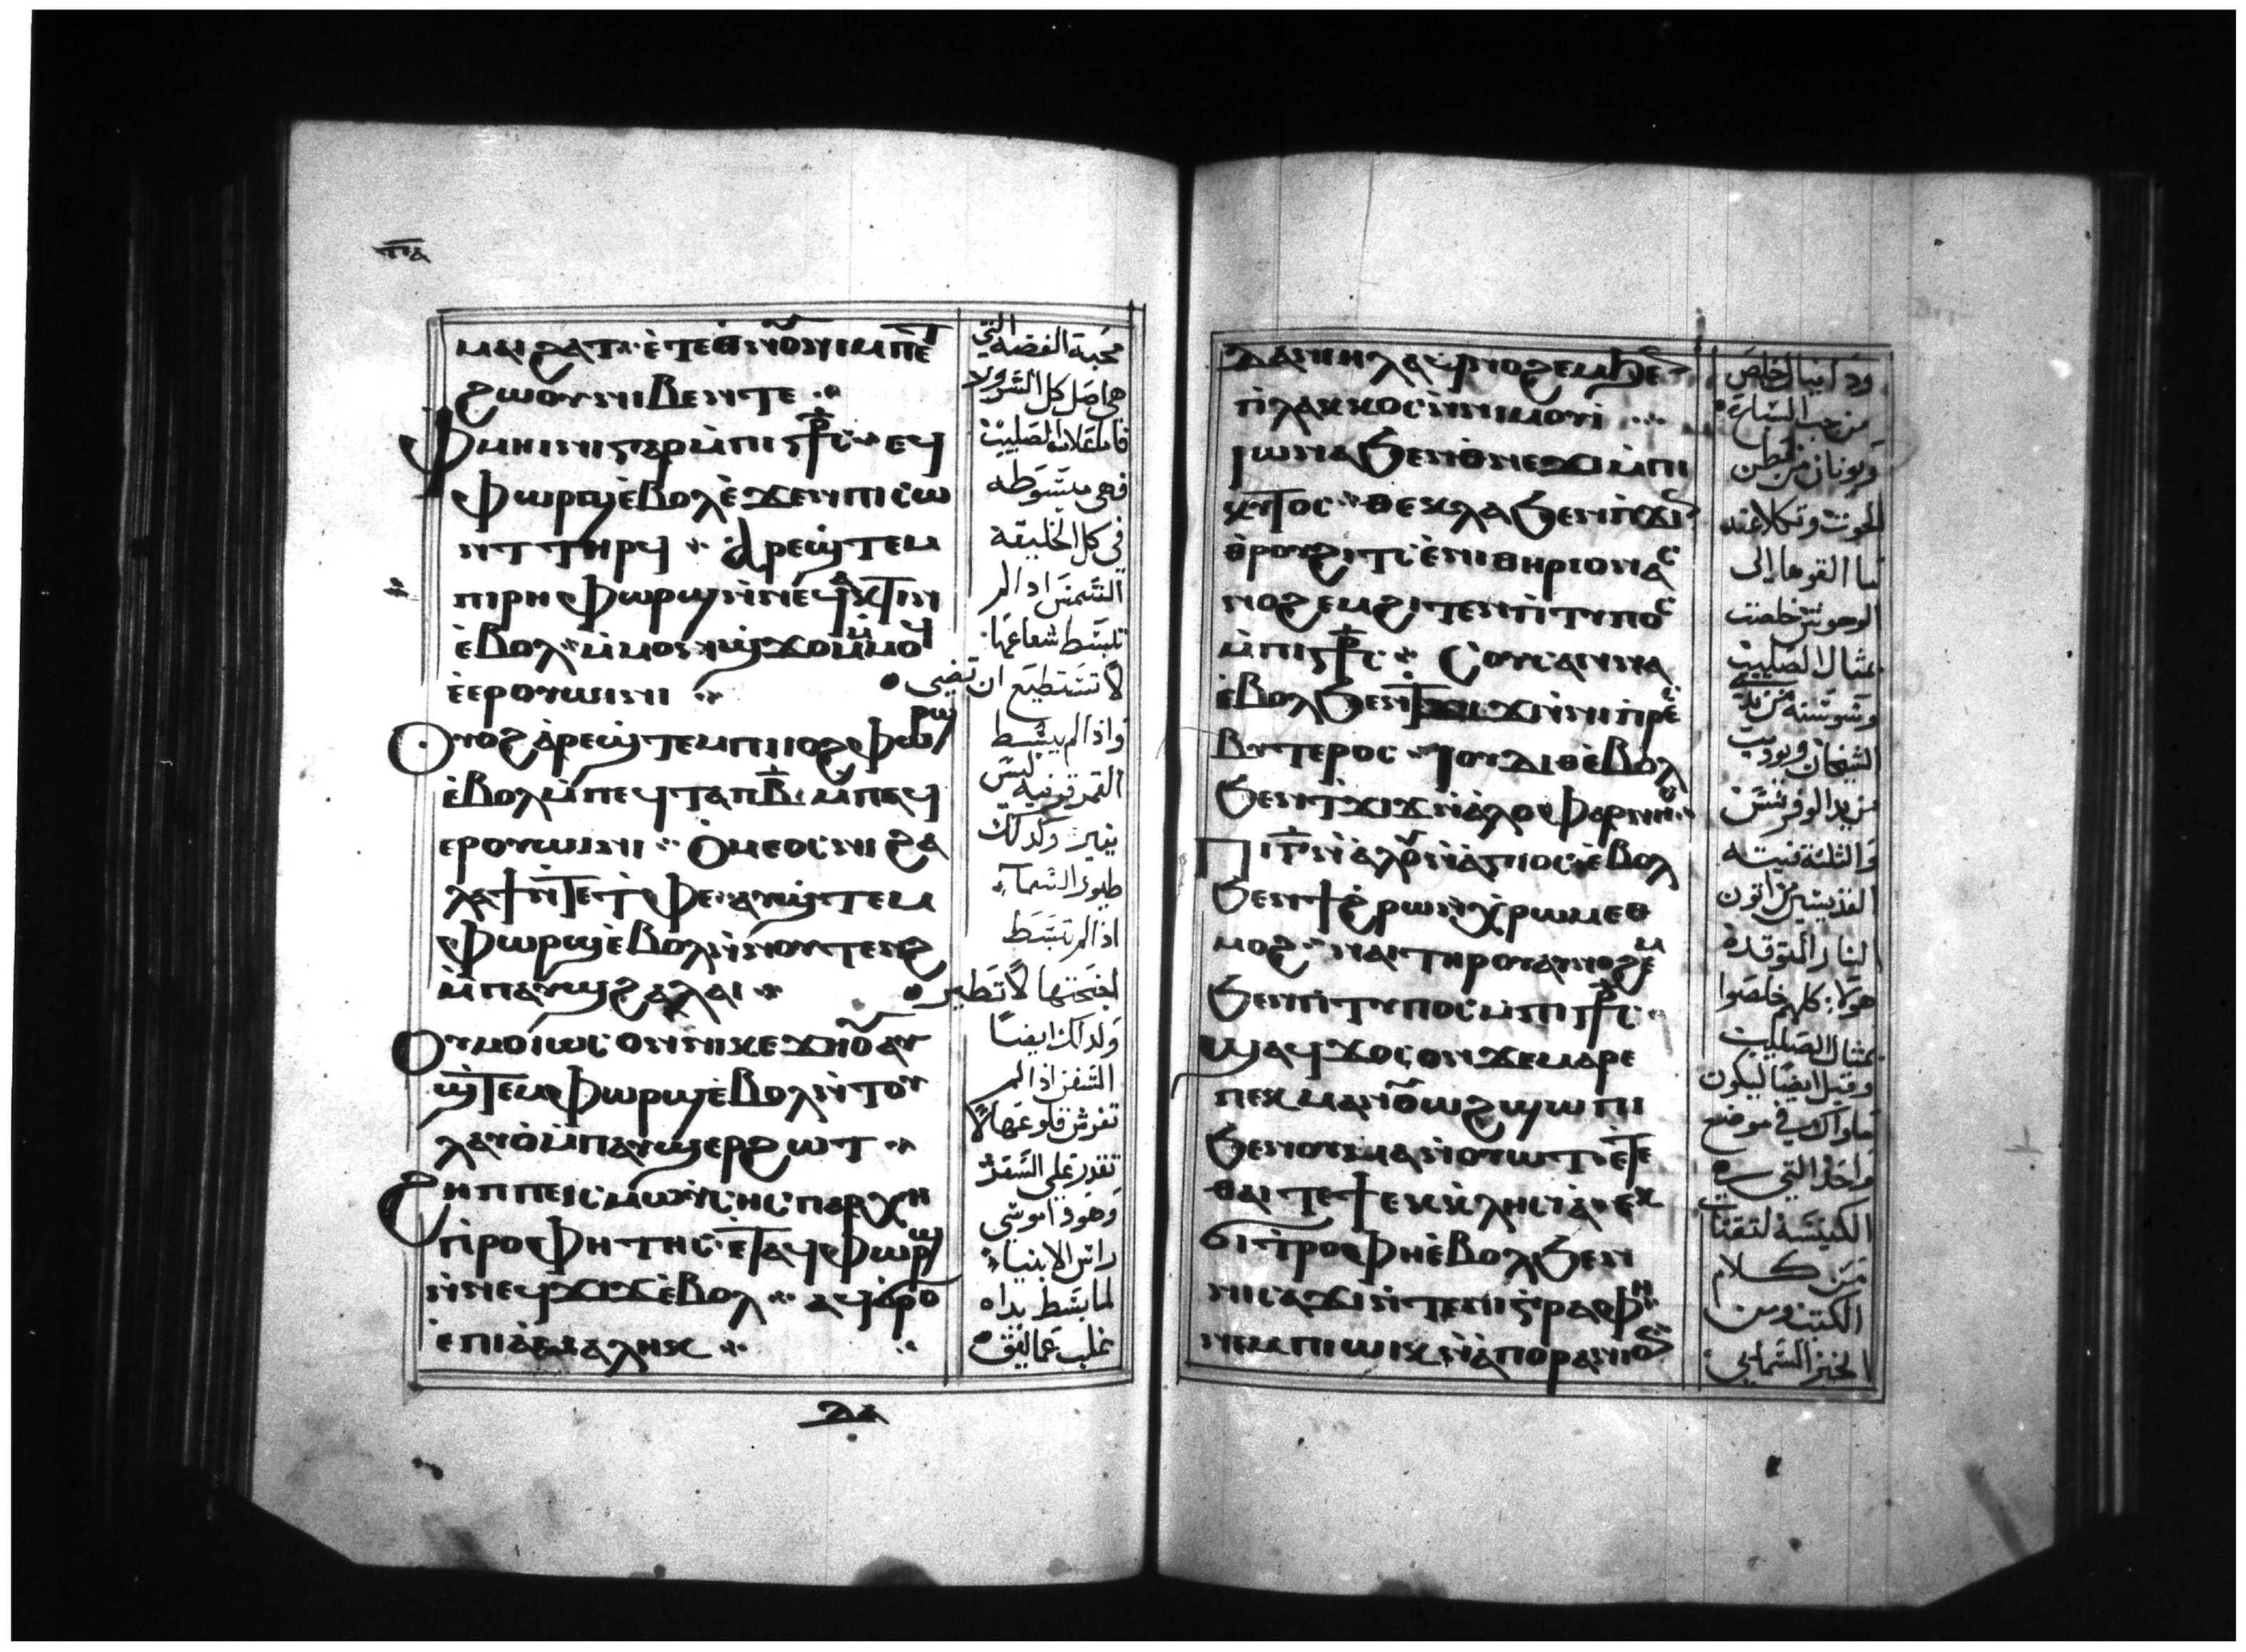 ⲡⲁ
ⲙⲁⲓϩⲁⲧ ⲉⲧⲉ ⲑⲛⲟⲩⲛⲓ ⲙⲡⲉⲧ
ϩⲱⲟⲩ ⲛⲓⲃⲉⲛ ⲧⲉ
ⲫⲙⲏⲓⲛⲓ ⲅⲁⲣ ⲙⲡⲓⲥⲣⲥ ⲉϥ
ⲫⲱⲣϣ ⲉⲃⲟⲗ ⲉϫⲉⲛ ⲡⲓⲥⲱ
ⲛⲧ ⲧⲏⲣϥ ⲁⲣⲉϣⲧⲉⲙ
ⲡⲓⲣⲏ ⲫⲱⲣϣ ⲛⲛⲉϥⲁⲕⲧⲓⲛ
ⲉⲃⲟⲗ ⲙⲙⲟⲛ ϣϫⲟⲙ ⲙⲙⲟϥ
ⲉⲉⲣⲟⲩⲱⲓⲛⲓ
ⲟⲩⲟϩ ⲁⲣⲉϣⲧⲉⲙ ⲡⲓⲓⲟϩ ⲫⲱⲣϣ
ⲉⲃⲟⲗ ⲙⲡⲉϥⲧⲁⲡ ⲃ ⲙⲡⲁϥ
ⲉⲣⲟⲩⲱⲓⲛⲓ ⲟⲙⲉⲟⲥ ⲛⲓϩⲁ
ⲗⲁϯ ⲛⲧⲉ ⲧⲫⲉ ⲁⲩϣⲧⲉⲙ
ⲫⲱⲣϣ ⲉⲃⲟⲗ ⲛⲛⲟⲩⲧⲉⲛϩ
ⲙⲡⲁⲩϣϩⲁⲗⲁⲓ
ⲟⲩⲙⲟⲓⲱⲥ ⲟⲛ ⲛⲓⲕⲉϫⲏⲟⲩ ⲁⲩ
ϣⲧⲉⲙⲫⲱⲣϣ ⲉⲃⲟⲗ ⲛⲧⲟⲩ
ⲗⲁⲩⲟ ⲙⲡⲁⲩϣⲉⲣϩⲱⲧ
ϩⲏⲡⲡⲉ ⲓⲥ ⲙⲱⲩⲥⲏⲥ ⲡⲁⲣⲭⲏ
ⲡⲣⲟⲫⲏⲧⲏⲥ ⲉⲧⲁϥⲫⲱⲣϣ
ⲛⲛⲉϥϫⲓϫ ⲉⲃⲟⲗ ⲁϥϭⲣⲟ
ⲉⲡⲓⲁⲙⲁⲗⲏⲕ
محبة الفضة التي
هي اصل كل الشرور
فان علامة الصليب
فهي مبسوطه
في كل الخليقة
الشمس اذا لم
تبسط شعاعها
لا تستطيع ان تضيى
واذا لم يبسط
القمر قرنيه ليس
ينير وكذلك
طيور السماء
اذا لم تبسط
اجنحتها لا تطير
وكذلك ايضا
السفن اذا لم
تفرش قلوعها لا
تقدر على السفر
وهوذا موسى
راس الانبياء
لما بسط يداه
غلب عماليق
ⲇⲁ
ⲇⲁⲛⲓⲏⲗ ⲁϥⲛⲟϩⲉⲙ ϧⲉⲛ
ⲡⲓⲗⲁⲕⲕⲟⲥ ⲛⲛⲓⲙⲟⲩⲓ
ⲓⲱⲛⲁ ϧⲉⲛ ⲑⲛⲉϫⲓ ⲙⲡⲓ
ⲕⲏⲧⲟⲥ ⲑⲉⲕⲗⲁ ϧⲉⲛ ⲡϫⲓⲛ
ⲑⲣⲟⲩϩⲓⲧⲥ ⲉⲛⲓⲑⲏⲣⲓⲟⲛ ⲁⲥ
ⲛⲟϩⲉⲙ ϩⲓⲧⲉⲛ ⲡⲓⲧⲩⲡⲟⲥ
ⲙⲡⲓⲥⲣⲥ ⲥⲟⲩⲥⲁⲛⲛⲁ
ⲉⲃⲟⲗ ϧⲉⲛ ⲧϫⲓϫ ⲛⲛⲓⲡⲣⲉⲥ
ⲃⲩⲧⲉⲣⲟⲥ ⲓⲟⲩⲇⲓⲑ ⲉⲃⲟⲗ
ϧⲉⲛ ⲧϫⲓϫ ⲛⲁⲗⲟⲫⲁⲣⲛⲏⲥ
ⲡⲓⲅ ⲛⲁⲗⲟⲩ ⲛⲁⲅⲓⲟⲥ ⲉⲃⲟⲗ
ϧⲉⲛ ϯϩⲣⲱ ⲛⲭⲣⲱⲙ ⲉⲑ
ⲙⲟϩ ⲛⲁⲓ ⲧⲏⲣⲟⲩ ⲁⲩⲛⲟϩⲉⲙ
ϧⲉⲛ ⲡⲓⲧⲩⲡⲟⲥ ⲙⲡⲓⲥⲣⲥ
ϣⲁϥϫⲟⲥ ⲟⲛ ϫⲉ ⲙⲁⲣⲉ
ⲡⲉⲕⲙⲁⲛⲟⲩⲱϩ ϣⲱⲡⲓ
ϧⲉⲛ ⲟⲩⲙⲁ ⲛⲟⲩⲱⲧ ⲉⲧⲉ
ⲑⲁⲓ ⲧⲉ ϯⲉⲕⲕⲗⲏⲥⲓⲁ ⲉⲕ
ϭⲓⲧⲣⲟⲫⲏ ⲉⲃⲟⲗ ϧⲉⲛ
ⲛⲓⲥⲁϫⲓ ⲛⲧⲉ ⲛⲓⲅⲣⲁⲫⲏ
ⲛⲉⲙ ⲡⲓⲱⲓⲕ ⲛⲁⲡⲟⲣⲁⲛⲓⲟⲛ
ودانيال خلص
من جب السباع
ويونان من بطن
الحوت وتكلا عند
ما القوها الى
الوحوش خلصت
بمثال الصليب
وسوسنه من يد
الشيخان ويوديت
من يد الوفرنيس
والثلثة فتيه
القديسين من اتون
النار المتوقدة
هولاء كلهم خلصوا
بمثال الصليب
وقيل ايضا ليكون
ماواك في موضع
واحد التي هي
الكنيسة لتقتات
من كلام
الكتب ومن
الخبز السمايى